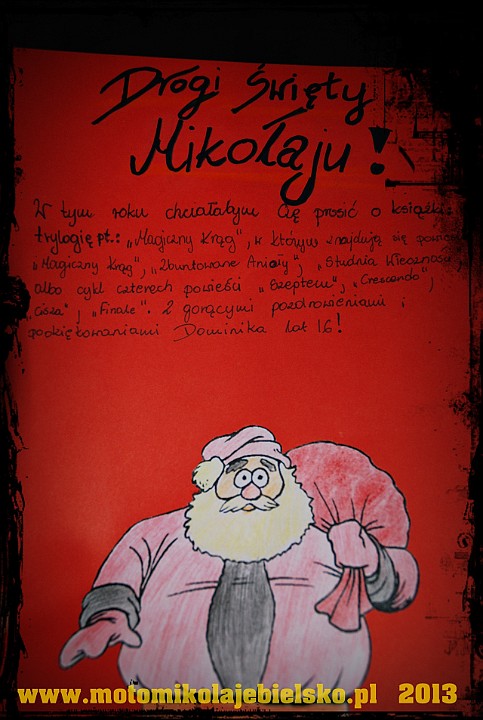 Drogi Święty
Mikołaju!
W tym roku chciałabym Cię prosić o książki:
trylogię pt.: „Magiczny Krąg", w którym znajdują się
„Magiczny Krąg", „Zbuntowane Anioły", „Studnia Wieczności"
albo cykl czterech powieści „Szeptem", „Crescendo",
„Cisza", „Finale". Z gorącymi pozdrowieniami i
podziękowaniami Dominika lat 16!
www.motomikolajebielsko.pl 2013